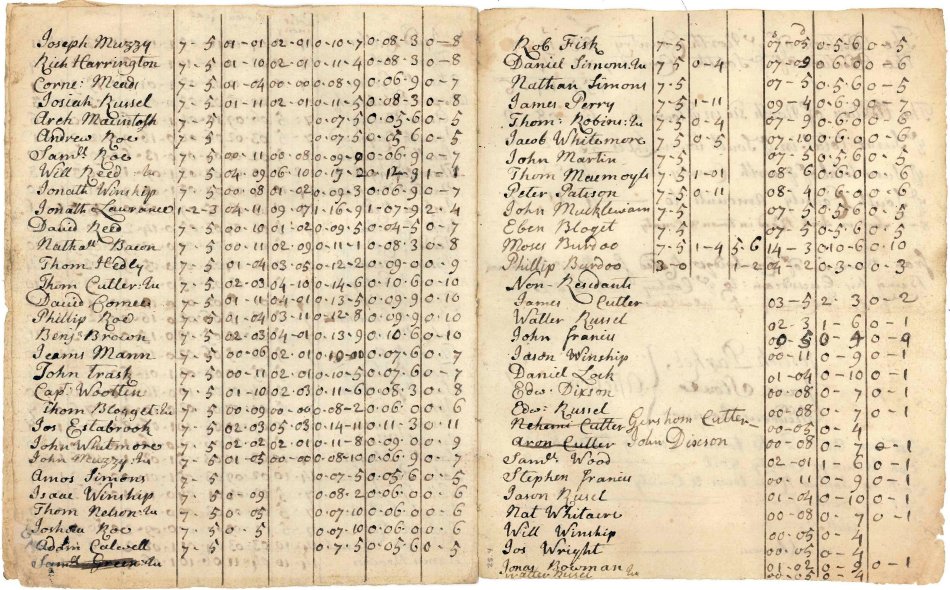 Joseph Muzzy 7-5 01-01 02-01 0-10-7 0-08-3 0-8
Rich Harrington 7-5 01-02 02-01 0-11-4 0-08-3 0-8
Corne: Meads 7-5 01-04 00-00 0-08-9 0-06-9 0-7
Josiah Russel 7-5 01-11 02-01 0-11-5 0-08-3 0-8
Arch Macintosh 7-5 0-07-5 0-05-6 0-5
Andrew Roe 7-5 0-07-5 0-05-6 0-5
Samll Roe 7-5 00-11 00-08 0-09-0 0-06-9 0-7
Will Reed 7-5 04-09 06-10 0-17-2 0-12-9 1-1
Jonath Winship 7-5 00-08 01-02 0-09-3 0-06-9 0-7
Jonath Lawrance 1-2-3 04-11 09-07 1-16-9 1-07-9 2-4
David Reed 7-5 00-10 01-02 0-09-5 0-04-5 0-7
Nathall Bacon 7-5 00-11 02-09 0-11-1 0-08-3 0-8
Thom Hedly 7-5 01-04 03-05 0-12-2 0-09-0 0-9
Thom Cutler: Ju 7-5 02-03 04-10 0-14-6 0-10-6 0-10
David Comee 7-5 01-11 04-01 0-13-5 0-09-9 0-10
Phillip Roe 7-5 01-04 03-11 0-12-8 0-09-9 0-10
Benja Brown 7-5 02-03 04-01 0-13-9 0-10-6 0-10
Jeams Mann 7-5 00-06 02-01 0-10-00 0-07-6 0-7
John Trask 7-5 00-11 02-01 0-10-5 0-07-6 0-7
Capt Woottin 7-5 01-10 02-03 0-11-6 0-08-3 0-8
Thom Blogget: Ju 7-5 00-09 00-00 0-08-2 0-06-0 0-6
Jos Estabrook 7-5 02-03 05-03 0-14-11 0-11-3 0-11
John Whitmore 7-5 02-02 02-01 0-11-8 0-09-0 0-9
John Muzzy Ju 7-5 01-05 00-00 0-08-10 0-06-9 0-7
Amos Simons 7-5 0-07-5 0-05-6 0-5
Isaac Winship 7-5 0-09 0-08-2 0-06-0 0-6
Thom Nelson: Ju 7-5 0-05 0-07-10 0-06-0 0-6
Joshua Roe 7-5 0-5 0-07-10 0-06-0 0-6
Adam Calwell 7-5 0-7-5 0-05-6 0-5
Samll Green: Ju
Rob Fisk 7-5 07-05 0-5-6 0-5
Daniel Simons: Ju 7-5 0-4 07-09 0-6-0 0-6
Nathan Simons 7-5 07-5 0-5-6 0-5
James Perry 7-5 1-11 09-4 0-6-9 0-7
Thom: Robins: Ju 7-5 0-4 07-9 0-6-0 0-6
Jacob Whitemore 7-5 0-5 07-10 0-6-0 0-6
John Martin 7-5 07-5 0-5-6 0-5
Thom Macmoyls 7-5 1-01 08-6 0-6-0 0-6
Peter Patison 7-5 0-11 08-4 0-6-0 0-6
John Mucklewain 7-5 07-5 0-5-6 0-5
Eben Bloget 7-5 07-5 0-5-6 0-5
Moses Burdoo 7-5 1-4 5-6 14-3 0-10-6 0-10
Phillip Burdoo 3-0 1-2 04-2 0-3-0 0-3
Non-Residants
James Cutler 03-5 2-3 0-2
Walter Russel 02-3 1-6 0-1
John francis 0-5 0-4 0-4
Jason Winship 00-11 0-9 0-1
Daniel Lock 01-04 0-10 0-1
Edw: Dixson 00-08 0-7 0-1
Edw: Russel 00-08 0-7 0-1
Nehemi Cutter Gershom Cutter 00-05 0-4
Aron Cutler John Dixson 00-08 0-7 0-1
Samll Wood 02-01 1-6 0-1
Stephen francis 00-11 0-9 0-1
Jason Rusel 01-04 0-10 0-1
Nat Whitaire 00-08 0-7 0-1
Will Winship 00-05 0-4
Jos Wright 00-05 0-4
Jonas Bowman 01-02 0-9 0-1
Walter Rusel Ju 00-05 0-4